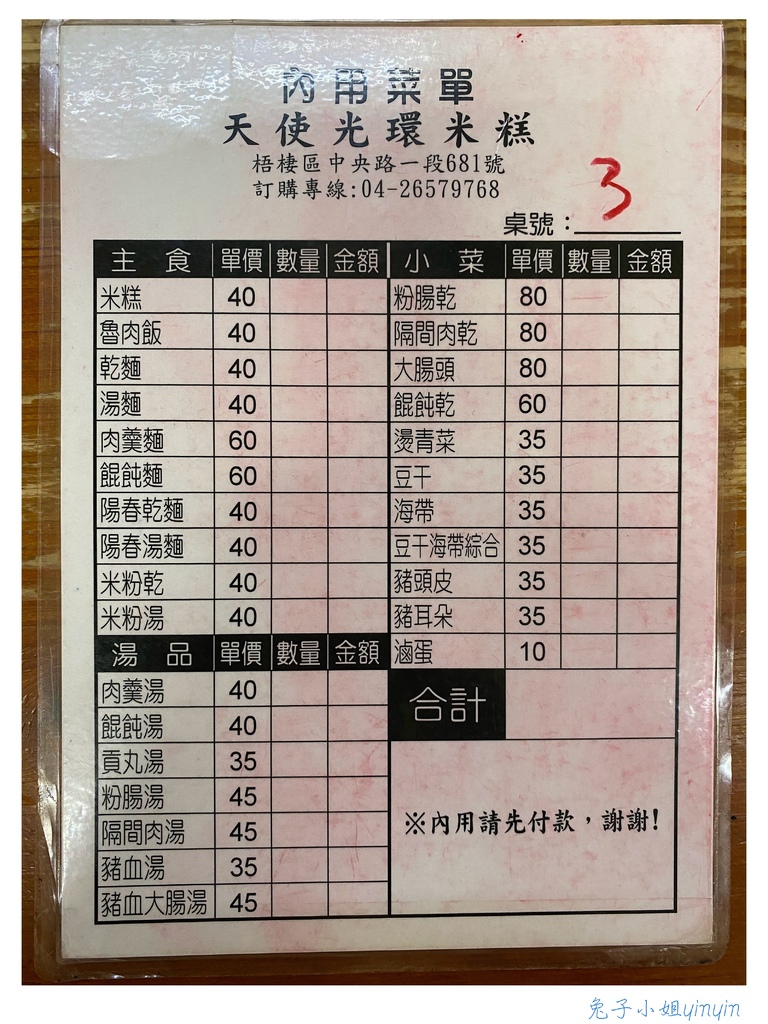 內用菜單
天使光環米糕
梧棲區中央路一段681號
訂購專線:04-26579768
桌號：3
主食 單價 數量 金額 小菜 單價 數量 金額
米糕 40 粉腸乾 80
魯肉飯 40 隔間肉乾 80
乾麵 40 大腸頭 80
湯麵 40 餛飩乾 60
肉羹麵 60 燙青菜 35
餛飩麵 60 豆干 35
陽春乾麵 40 海帶 35
陽春湯麵 40 豆干海帶綜合 35
米粉乾 40 豬頭皮 35
米粉湯 40 豬耳朵 35
湯品 單價 數量 金額 滷蛋 10
肉羹湯 40 合計
餛飩湯 40
貢丸湯 35
粉腸湯 45
隔間肉湯 45
豬血湯 35
豬血大腸湯 45
※內用請先付款，謝謝!
兔子小姐yinyin